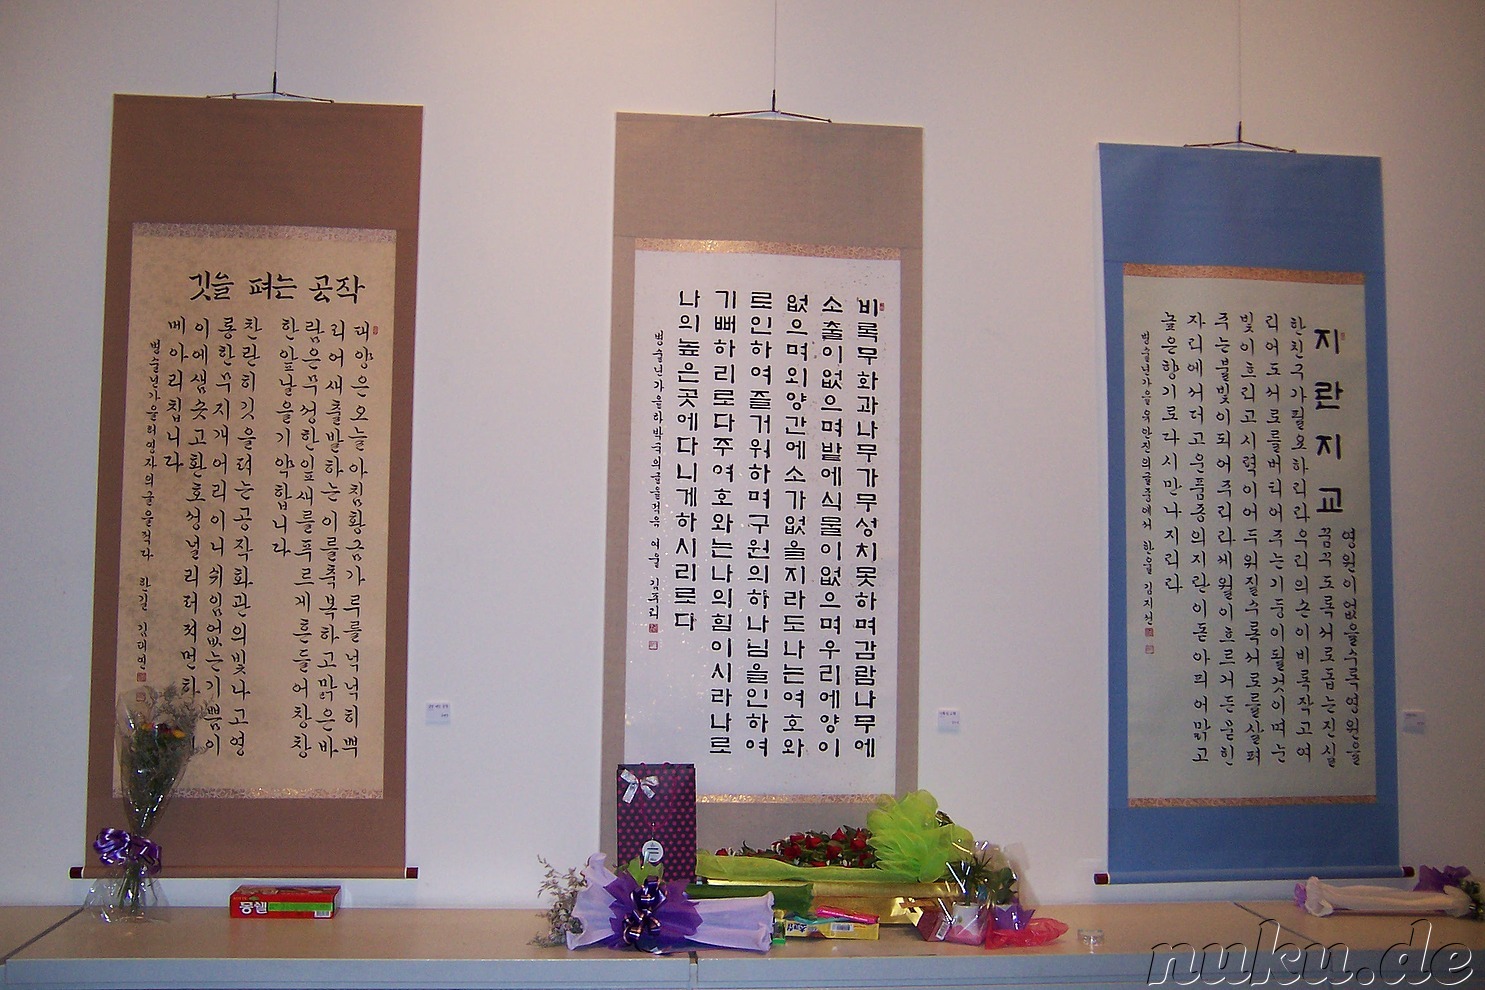 깃을 펴는 공작
태양은오늘아침황금가루를넉넉히뿌
리어새출발하는이를축복하고맑은바
람은무성한잎새를푸르게흔들어창창
한앞날을기약합니다
찬란히깃을펴는공작화관의빛나고영
롱한무지개어리이니쉬임없는기쁨이
이에샘솟고환호성널리퍼져먼하
메아리칩니다
병술년가을허영자의글을적다 한길 김대연
비록무화과나무가무성치못하며감람나무에
소출이없으며밭에식물이없으며우리에양이
없으며외양간에소가없을지라도나는여호와
로인하여즐거워하며구원의하나님을인하여
기뻐하리로다주여호와는나의힘이시라나로
나의높은곳에다니게하시리로다
병술년가을하박국의글을적음 김주리
지란지교
영원이없을수록영원을
꿈꾸도록서로돕는진실
한친구가필요하리라우리의손이비록작고여
리어도서로를버티어주는기둥이될것이며눈
빛이흐리고시력이어두워질수록서로를살펴
주는불빛이되어주리라세월이흐르거든묻힌
자리에서더고운품종의지란이돋아피어맑고
높은향기로다시만나지리라
병술년가을유안진의글중에서 한얼 김지선
몽쉘
nuku.de